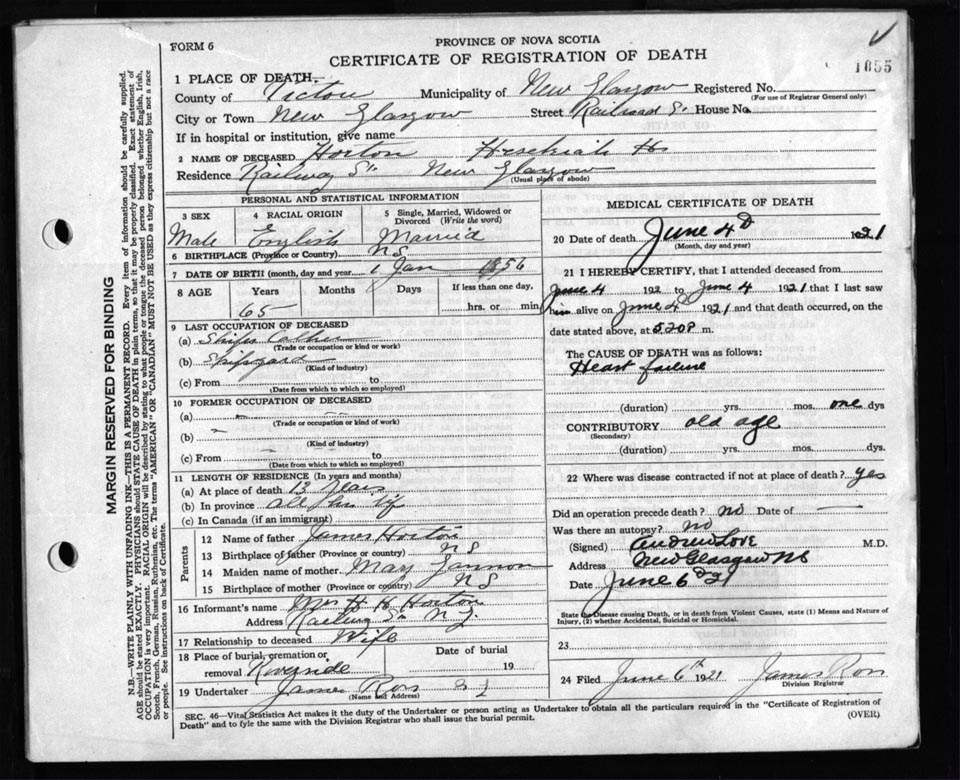 FORM 6
PROVINCE OF NOVA SCOTIA
CERTIFICATE OF REGISTRATION OF DEATH
1055
1 PLACE OF DEATH.
County of Pictou Municipality of New Glasgow Registered No.
(For use of Registrar General only)
City or Town New Glasgow Street Railroad St House No.
If in hospital or institution, give name
2 NAME OF DECEASED Horton Hesekiah
Residence Railway St New Glasgow
(Usual place of abode)
PERSONAL AND STATISTICAL INFORMATION
3 SEX 4 RACIAL ORIGIN 5 Single, Married, Widowed or Divorced (Write the word)
Male English Married
6 BIRTHPLACE (Province or Country) NS
7 DATE OF BIRTH (month, day and year 1 Jan 1856
8 AGE Years Months Days If less than one day,
65 hrs. or min.
9 LAST OCCUPATION OF DECEASED
(a) Ships
(Trade or occupation or kind or work)
(b) Shipyard
(Kind of industry)
(c) From to
(Date from which to which so employed)
10 FORMER OCCUPATION OF DECEASED
(a) –
(Trade or occupation or kind of work)
(b) –
(Kind of industry)
(c) From to
(Date from which to which so employed)
11 LENGTH OF RESIDENCE (In years and months)
(a) At place of death 13 years
(b) In province All his life
(c) In Canada (if an immigrant)
Parents
12 Name of father James Horton
13 Birthplace of father (Province or country) NS
14 Maiden name of mother May
15 Birthplace of mother (Province or country) NS
16 Informant's name Mrs H H Horton
Address Railway St N.G.
17 Relationship to deceased Wife
18 Place of burial, cremation or removal Riverside Date of burial 19
19 Undertaker James Ross
(Name and Address)
MEDICAL CERTIFICATE OF DEATH
20 Date of death June 4th 1921
(Month, day and year)
21 I HEREBY CERTIFY, that I attended deceased from
June 4 192 to June 4 1921 that I last saw
him alive on June 4th 1921 and that death occurred, on the
date stated above, at 5.20 P m.
The CAUSE OF DEATH was as follows:
Heart failure
(duration) yrs. mos. one dys
CONTRIBUTORY old age
(Secondary)
(duration) yrs. mos. dys.
22 Where was disease contracted if not at place of death? yes
Did an operation precede death? no Date of —
Was there an autopsy? no
(Signed) Andrew Love M.D.
Address New Glasgow NS
Date June 6th 21
State the Disease causing Death, or in death from Violent Causes, state (1) Means and Nature of
Injury, (2) whether Accidental, Suicidal or Homicidal.
23
24 Filed June 6th 1921 James Ross
Division Registrar
SEC. 46—Vital Statistics Act makes it the duty of the Undertaker or person acting as Undertaker to obtain all the particulars required in the "Certificate of Registration of
Death" and to fyle the same with the Division Registrar who shall issue the burial permit.
(OVER)
MARGIN RESERVED FOR BINDING
N.B.—WRITE PLAINLY WITH UNFADING INK—THIS IS A PERMANENT RECORD. Every item of information should be carefully supplied.
AGE should be stated EXACTLY. PHYSICIANS should STATE CAUSE OF DEATH in plain terms, so that it may be properly classified. Exact statement of
OCCUPATION is very important. RACIAL ORIGIN will be described by stating to what people or tongue the deceased person belonged whether English, Irish,
Scotch, French, German, Russian, Ruthenian, etc. The terms "AMERICAN" OR "CANADIAN" MUST NOT BE USED as they express citizenship but not a race
or people. See instructions on back of Certificate.